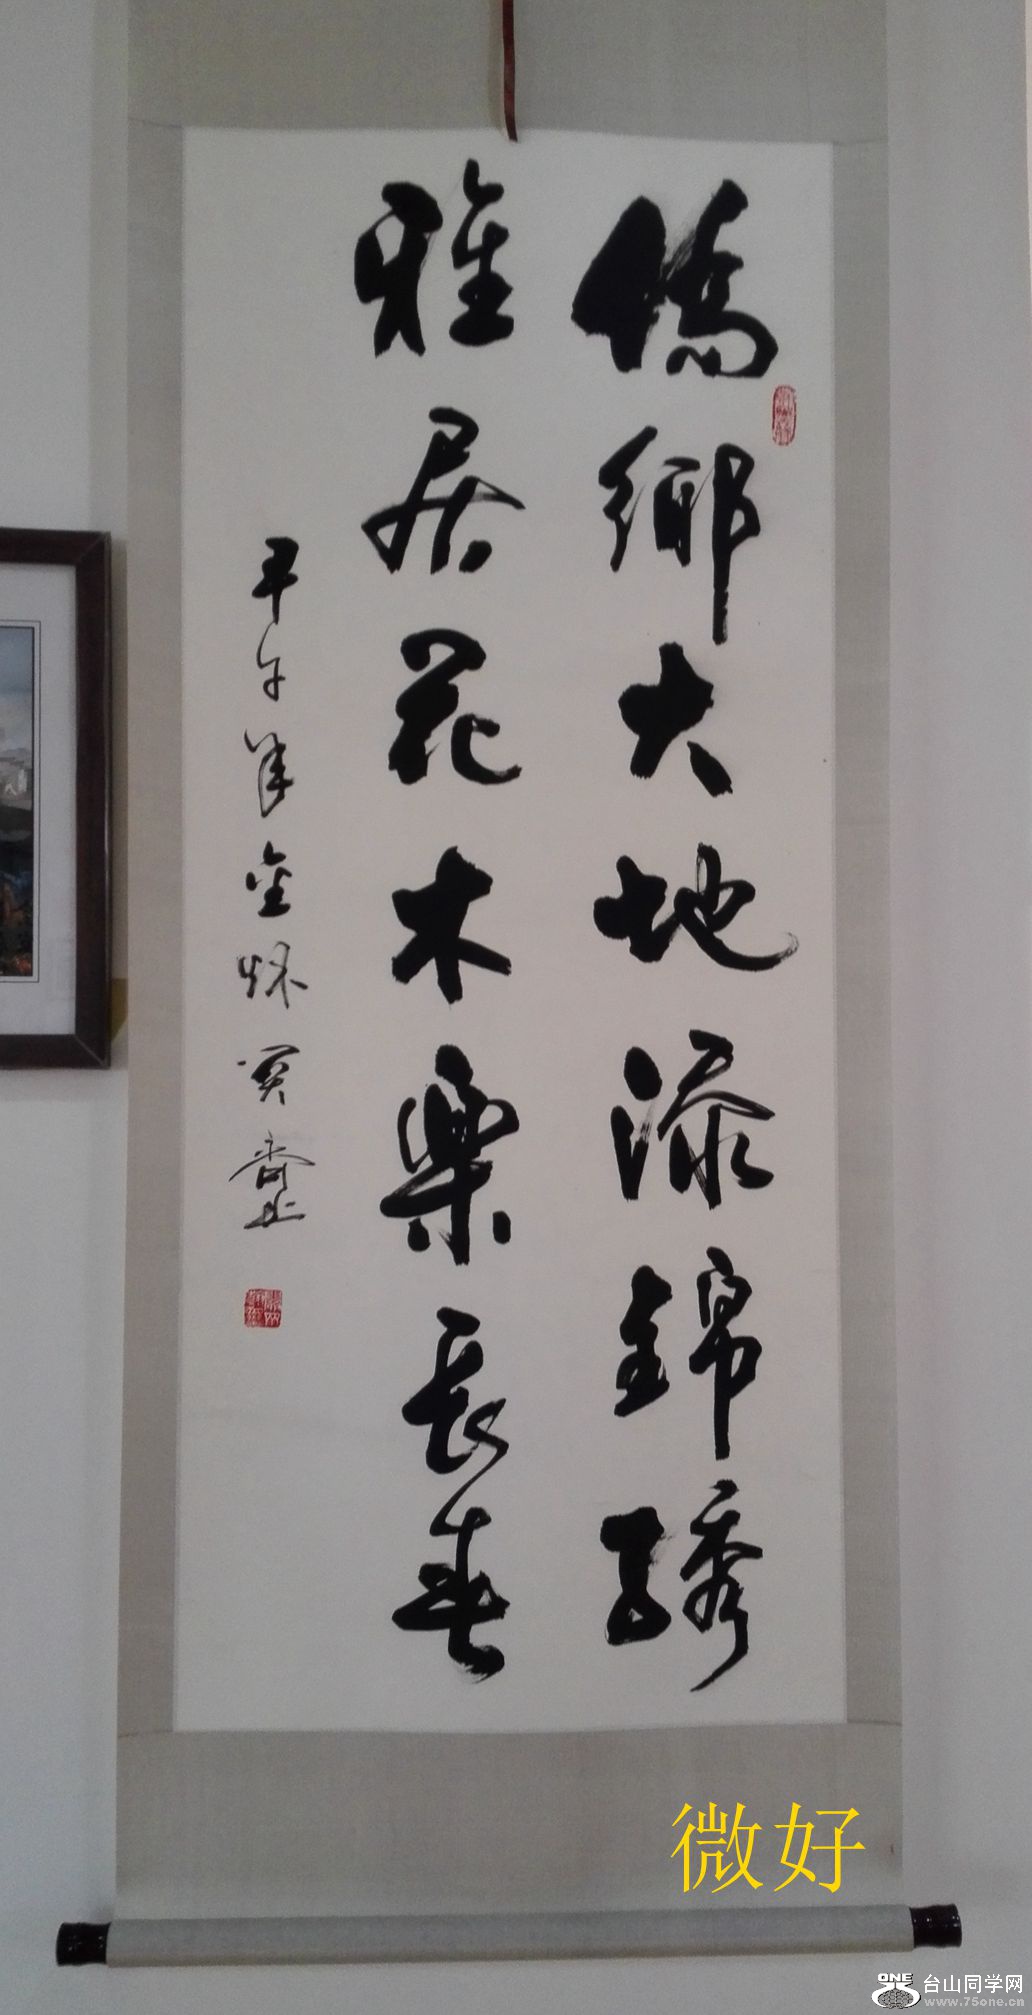 僑鄉大地添錦綉
雅居花木樂長春
甲午年
微好
ONE 台山同学网
www.75one.cn